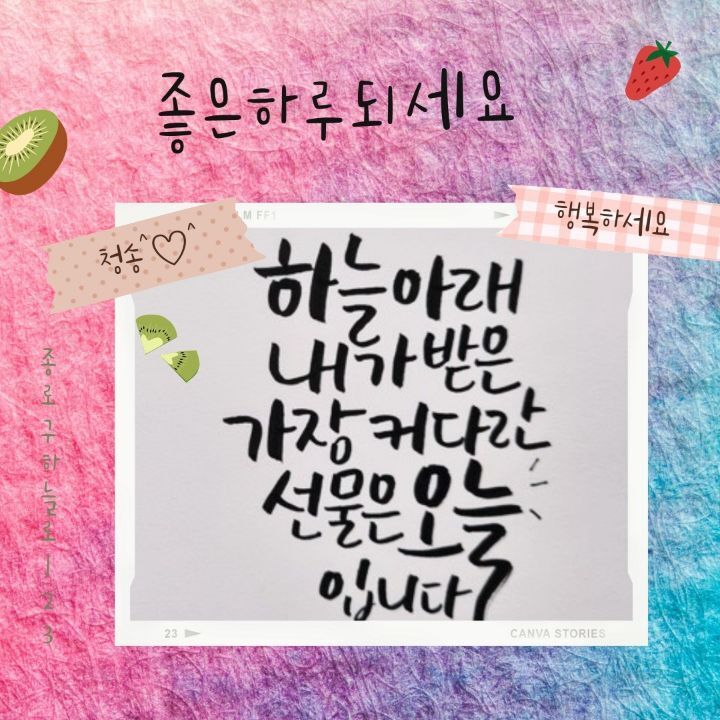 좋은하루되세요
행복하세요
청송^♡^
M FF1
하늘아래
내가받은
가장커다란
선물은오늘
입니다
종로구하늘로123
23
CANVA STORIES